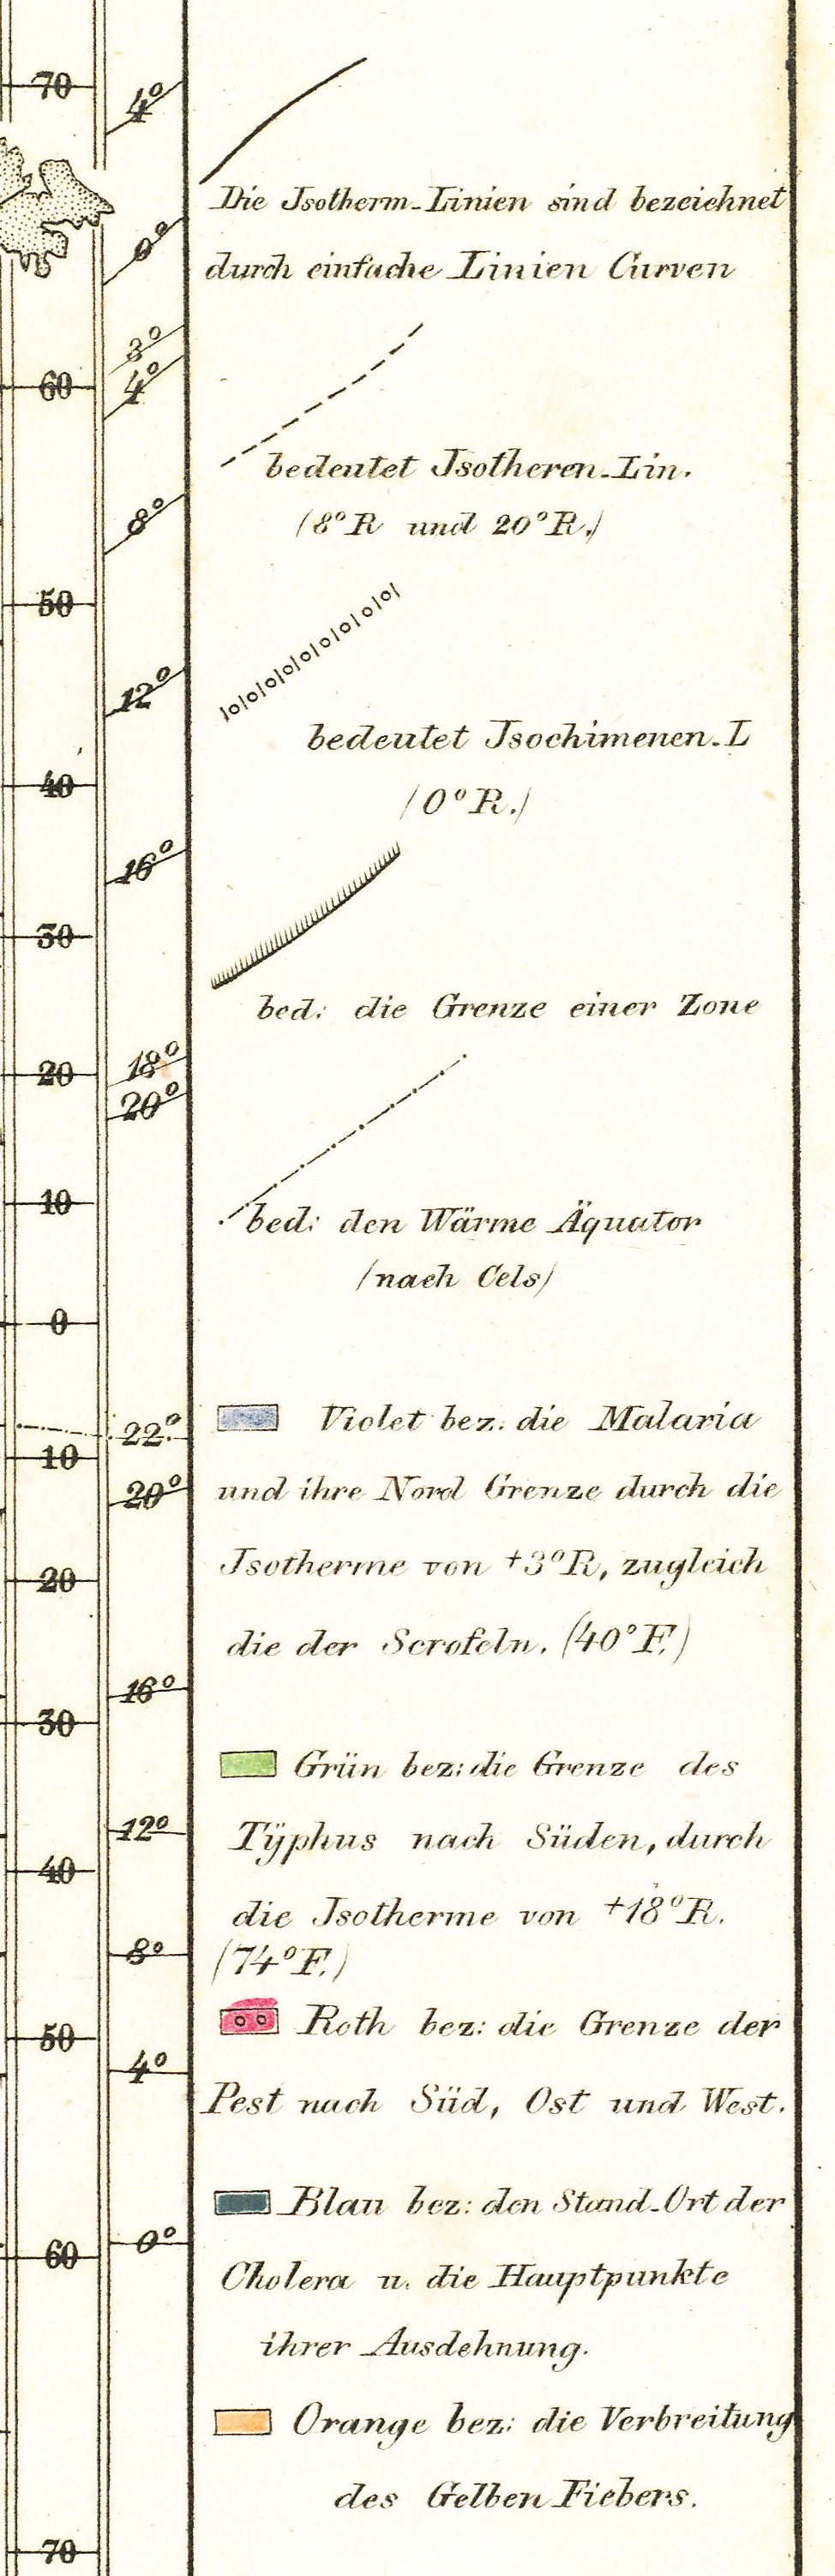 70
4°
Die Isotherm-Linien sind bezeichnet
0°
durch einfache Linien Curven
3°
60
4°
bedeutet Isotheren-Lin.
8°
(8°R und 20°R.)
50
12°
bedeutet Isochimenen-L
40
(0°R.)
16°
30
bed: die Grenze einer Zone
18°
20
20°
10
bed: den Wärme Äquator
(nach Cels)
0
Violet bez. die Malaria
22°
10
20°
und ihre Nord Grenze durch die
Isotherme von +3°R, zugleich
20
die der Scrofeln. (40°F.)
16°
30
Grün bez: die Grenze des
12°
Tÿphus nach Süden, durch
40
die Isotherme von +18°R.
8°
(74°F.)
Roth bez: die Grenze der
50
4°
Pest nach Süd, Ost und West.
Blau bez: den Stand-Ort der
0°
60
Cholera u. die Hauptpunkte
ihrer Ausdehnung.
Orange bez: die Verbreitung
des Gelben Fiebers.
70